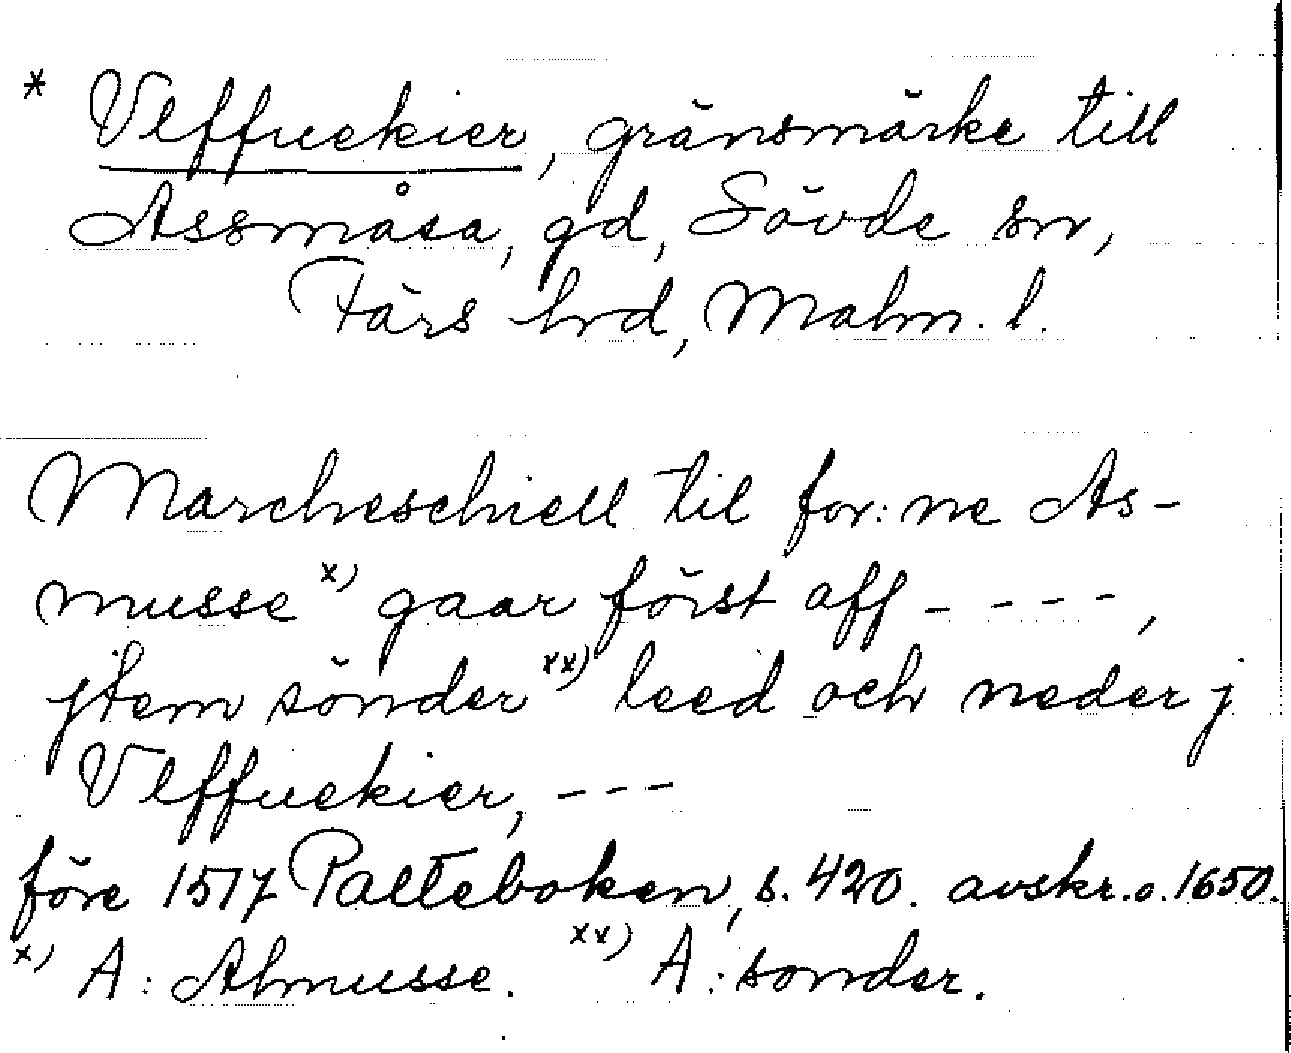 * Vlffuekier, gränsmärke till
Assmåsa, gd, Sövde sn,
Färs hrd, Malm. l.
Marcheschiell til for:ne As-
musse x) gaar först aff - - - -,
jtem sönder xx) leed och neder j
Vlffuekier, - - -
före 1517 Palteboken, s. 420. avskr. o. 1650.
x) A: Almusse. xx) A: sonder.